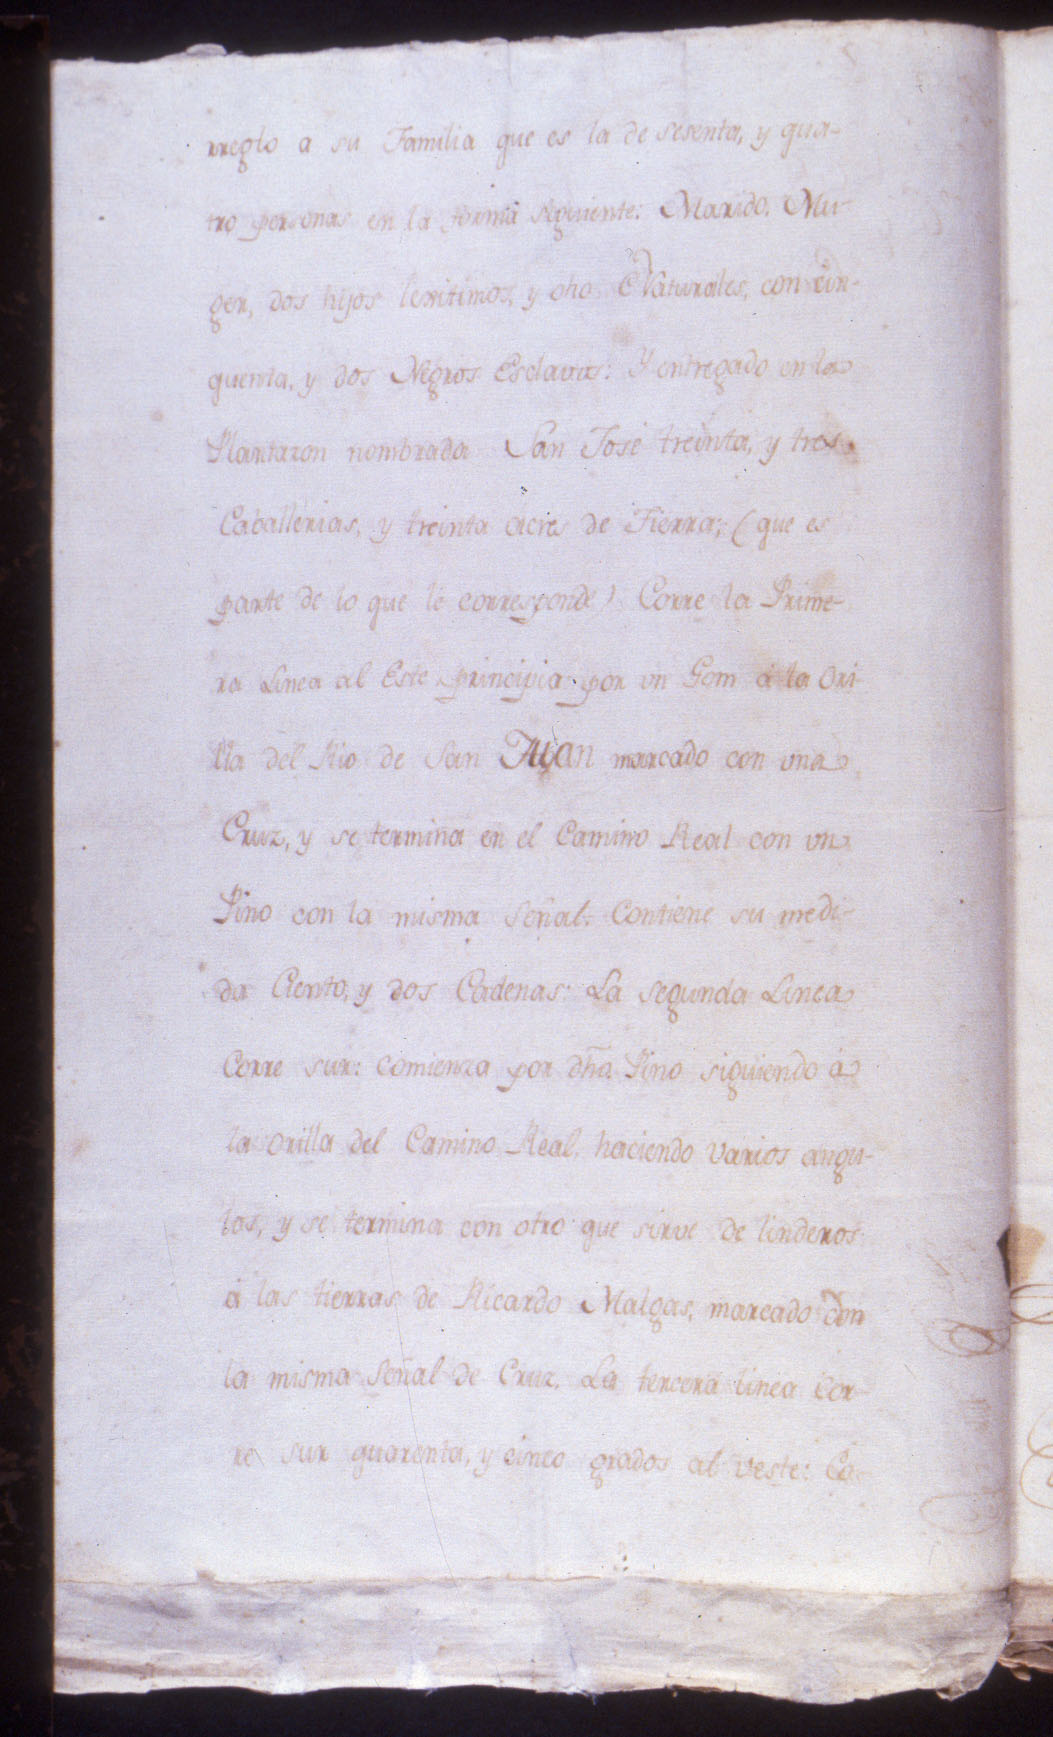 rreglo a su Familia que es la de sesenta, y qua-
tro personas en la forma siguiente: Marido, Mu-
ger, dos hijos lexitimos, y oho Naturales, con cin-
quenta, y dos Negros Esclavos: Y entregado en la
Plantazon nombrada San José treinta, y tres
Caballerias, y treinta acres de Tierra; (que es
parte de lo que le corresponde) Corre la Prime-
ra Linea al Este principia por un Gom á la Ori-
lla del Rio de San Juan marcado con una
Cruz, y se termina en el Camino Real con un
Pino con la misma Señal: Contiene su medi-
da Ciento, y dos Cadenas: La segunda Linea
Corre sur: comienza por dho. Pino siguiendo á
la Orilla del Camino Real, haciendo varios angu-
los, y se termina con otro que sirve de linderos
á las tierras de Ricardo Malgas, marcado con
la misma Señal de Cruz. La tercera linea Cor-
re sur quarenta, y cinco grados al veste: Co-